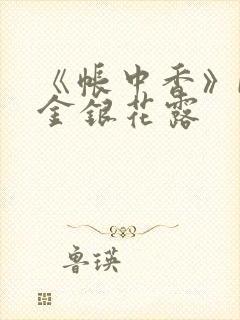 《帐中香》
金银花露
鲁瑛